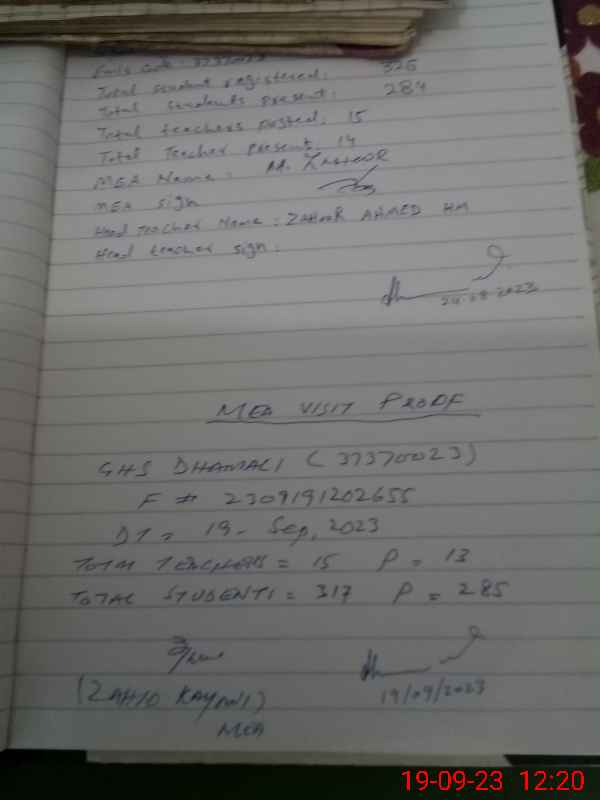 Emis Code: 37370023
Total Student registered: 326
Total Students present: 284
Total teachers posted: 15
Total Teacher present: 14
MEA Name: M. ZAHOOR
MEA sign
Head Teacher Name: ZAHOOR AHMED HM
Head teacher sign:
24.08.2023
MEA VISIT PROOF
GHS DHAMALI (37370023)
F # 2309191202655
DT = 19- Sep, 2023
TOTAL TEACHERS = 15 P = 13
TOTAL STUDENTS = 317 P = 285
(ZAHID KAYANI)
19/09/2023
MEA
19-09-23 12:20